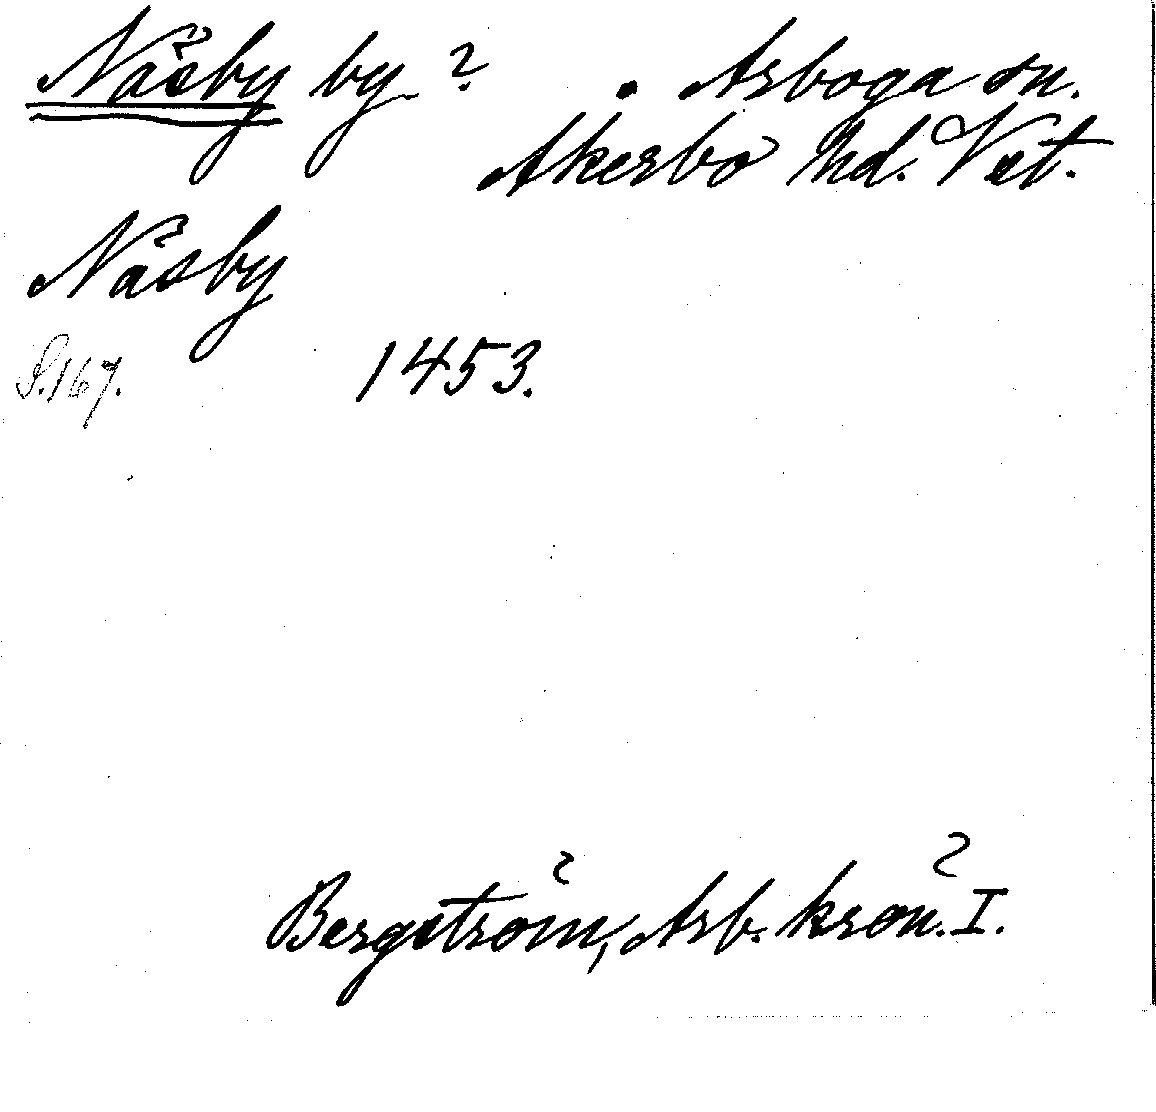 Näsby by ? . Arboga sn.
Akerbo hd. Vstm.
Näsby
S. 167. 1453.
Bergström, Arb. krön. I.